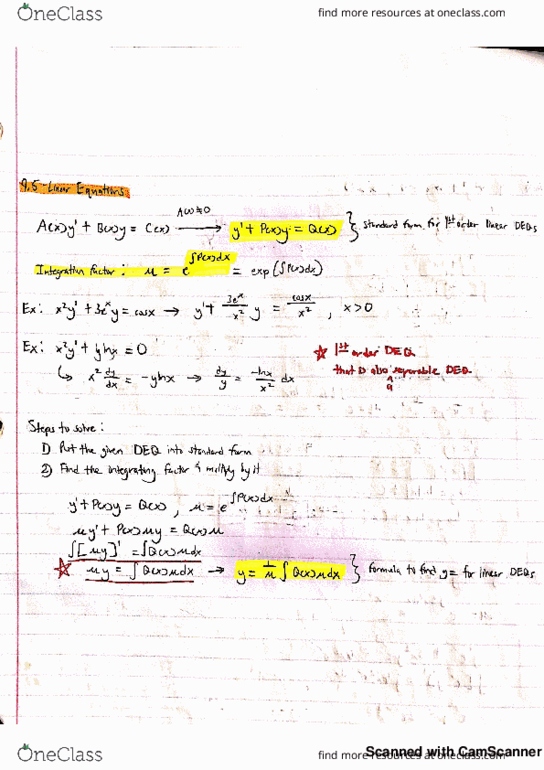 OneClass find more resources at oneclass.com
9.5 Linear Equations
A(x)y' + B(x)y = C(x) —A(x)≠0→ y' + P(x)y = Q(x) } Standard form for 1st order linear DEQs
Integration factor: μ = e^∫P(x)dx = exp(∫P(x)dx)
Ex: x²y' + 3e^x y = cosx → y' + 3e^x/x² y = cosx/x² , x>0
Ex: x²y' + ylnx = 0
☆ 1st order DEQ
that is also a separable DEQ
↳ x² dy/dx = -ylnx → dy/y = -lnx/x² dx
Steps to solve:
1) Put the given DEQ into standard form
2) Find the integrating factor & multiply by it
y' + P(x)y = Q(x) , μ = e^∫P(x)dx
μy' + P(x)μy = Q(x)μ
∫[μy]' = ∫Q(x)μdx
☆ μy = ∫Q(x)μdx → y = 1/μ ∫Q(x)μdx } formula to find y= for linear DEQs
OneClass find more resources at oneclass.com
Scanned with CamScanner